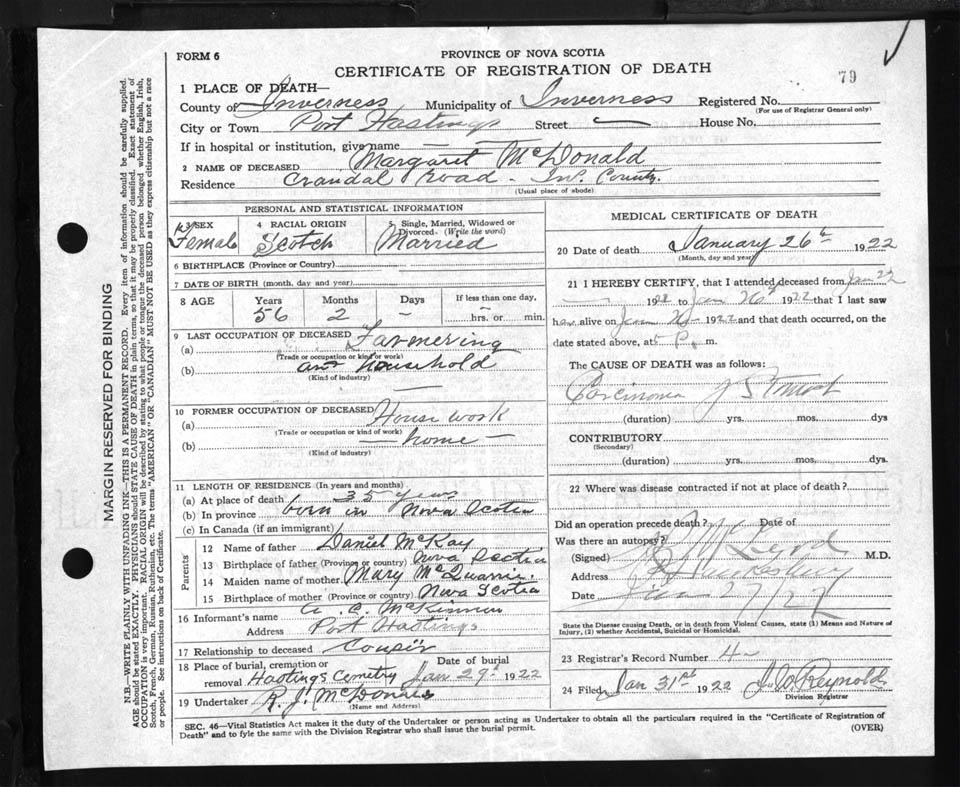 FORM 6
PROVINCE OF NOVA SCOTIA
CERTIFICATE OF REGISTRATION OF DEATH
79
1 PLACE OF DEATH—
County of Inverness Municipality of Inverness Registered No.
(For use of Registrar General only)
City or Town Port Hastings Street — House No.
If in hospital or institution, give name — —
2 NAME OF DECEASED Margaret McDonald
Residence Crandal Road - Inv. County.
(Usual place of abode)
PERSONAL AND STATISTICAL INFORMATION
3 SEX Female
4 RACIAL ORIGIN Scotch
5 Single, Married, Widowed or Divorced- (Write the word) Married
6 BIRTHPLACE (Province or Country)
7 DATE OF BIRTH (month, day and year)
8 AGE Years Months Days If less than one day,
56 2 — — hrs. or min.
9 LAST OCCUPATION OF DECEASED
(a) Farmering
(Trade or occupation or kind of work)
(b) and household
(Kind of industry)
10 FORMER OCCUPATION OF DECEASED
(a) House work
(Trade or occupation or kind of work)
(b) — home —
(Kind of industry)
11 LENGTH OF RESIDENCE (In years and months)
(a) At place of death 35 years
(b) In province born in Nova Scotia
(c) In Canada (if an immigrant)
Parents
12 Name of father Daniel McKay
13 Birthplace of father (Province or country) Nova Scotia
14 Maiden name of mother Mary McQuarrie.
15 Birthplace of mother (Province or country) Nova Scotia
16 Informant's name A. C. McKinnon
Address Port Hastings
17 Relationship to deceased Cousin
18 Place of burial, cremation or removal Hastings Cemetry Date of burial Jan 29th 1922
19 Undertaker R. J. McDonald
(Name and Address)
MEDICAL CERTIFICATE OF DEATH
20 Date of death January 26th 1922
(Month, day and year)
21 I HEREBY CERTIFY, that I attended deceased from Jan 22
— 1922 to Jan 26th 1922 that I last saw
her alive on Jan 1922 and that death occurred, on
date stated above, at P. m.
The CAUSE OF DEATH was as follows:
Carcinoma
(duration) yrs. mos. dys
CONTRIBUTORY
(Secondary)
(duration) yrs. mos. dys.
22 Where was disease contracted if not at place of death?
Did an operation precede death? Date of
Was there an autopsy?
(Signed) McLeod M.D.
Address Hawkesbury
Date Jan 27/22
State the Disease causing Death, or in Death from Violent Causes, state (1) Means and Nature of Injury, (2) whether Accidental, Suicidal or Homicidal.
23 Registrar's Record Number 4
24 Filed Jan 31st 1922 Reynolds
Division Registrar
SEC. 46—Vital Statistics Act makes it the duty of the Undertaker or person acting as Undertaker to obtain all the particulars required in the "Certificate of Registration of
Death" and to fyle the same with the Division Registrar who shall issue the burial permit. (OVER)
MARGIN RESERVED FOR BINDING
N.B.—WRITE PLAINLY WITH UNFADING INK—THIS IS A PERMANENT RECORD. Every item of information should be carefully supplied.
AGE should be stated EXACTLY. PHYSICIANS should STATE CAUSE OF DEATH in plain terms, so that it may be properly classified. Exact statement of
OCCUPATION is very important. RACIAL ORIGIN will be described by stating to what people or tongue the deceased person belonged whether English, Irish,
Scotch, French, German, Russian, Ruthenian, etc. The terms "AMERICAN" OR "CANADIAN" MUST NOT BE USED as they express citizenship but not a race
or people. See instructions on back of Certificate.